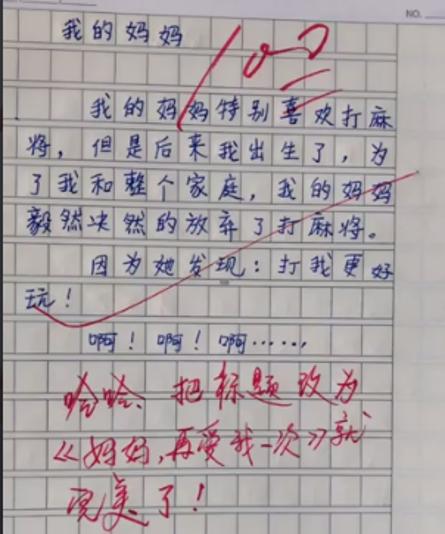 NO.
我的妈妈
100
我的妈妈特别喜欢打麻
将，但是后来我出生了，为
了我和整个家庭，我的妈妈
毅然决然的放弃了打麻将。
因为她发现：打我更好
玩！
啊！啊！啊……
哈哈、把标题改为
《妈妈，再爱我一次》就
完美了！